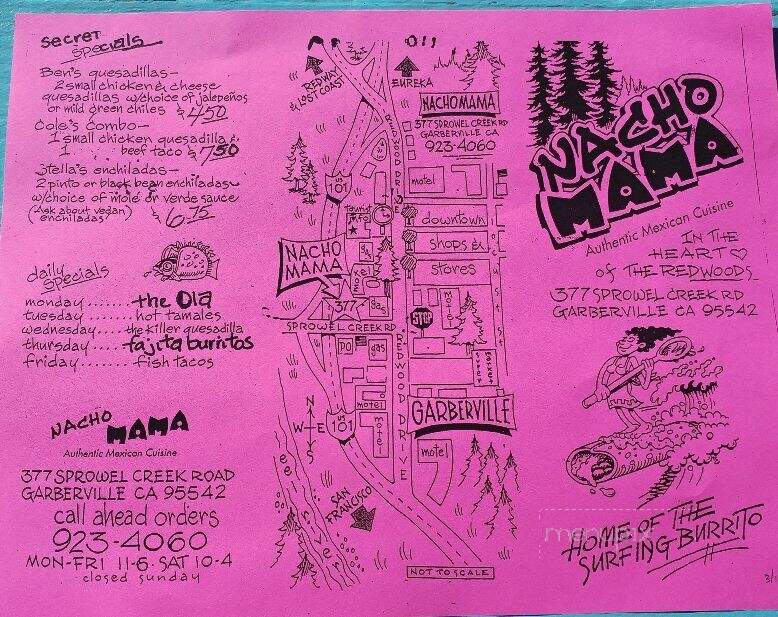 secret
specials
Ben's quesadillas—
2 small chicken & cheese
quesadillas w/choice of jalapeños
or mild green chiles $4.50
Cole's combo—
1 small chicken quesadilla &
1 beef taco $7.50
Stella's enchiladas—
2 pinto or black bean enchiladas
w/choice of molé or verde sauce
(Ask about vegan
enchiladas) $6.75
daily
specials
monday........the Ola
tuesday.......hot tamales
wednesday...the killer quesadilla
thursday....fajita burritos
friday........fish tacos
NACHO MAMA
Authentic Mexican Cuisine
377 SPROWEL CREEK ROAD
GARBERVILLE CA 95542
call ahead orders
923-4060
MON-FRI 11-6 SAT 10-4
closed sunday
REDWAY
& LOST COAST
EUREKA
NACHO MAMA
377 SPROWEL CREEK RD
GARBERVILLE CA
923-4060
REDWOOD DRIVE
US
101
motel
tourist
info
downtown
shops &
stores
NACHO
MAMA
motel
gas
377
gas
STOP
SPROWEL CREEK RD
PO
gas
REDWOOD DRIVE
motel
GARBERVILLE
US
101
motel
motel
N
W E
S
SAN
FRANCISCO
eel river
NOT TO SCALE
NACHO
MAMA
Authentic Mexican Cuisine
IN THE
HEART
of THE REDWOODS
377 SPROWEL CREEK RD
GARBERVILLE CA 95542
HOME OF THE
SURFING BURRITO